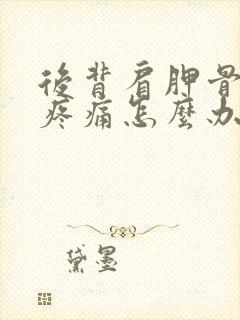 後背肩胛骨
疼痛怎麼办
黛墨